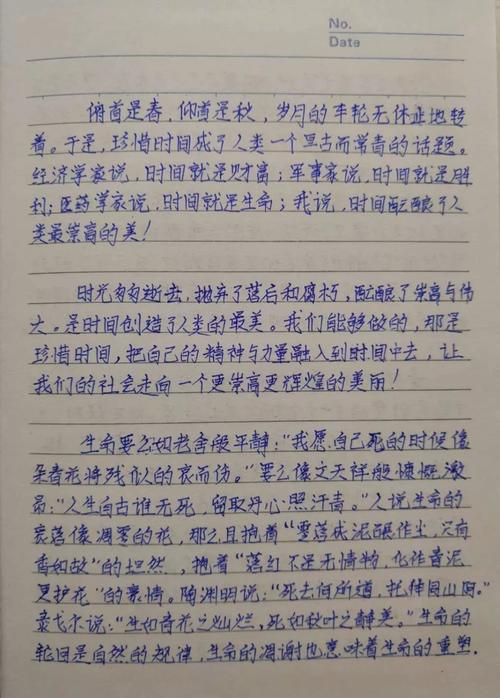 No.
Date
俯首是春，仰首是秋，岁月的车轮无休止地转
着。于是，珍惜时间成了人类一个亘古而常青的话题。
经济学家说，时间就是财富；军事家说，时间就是胜
利；医药学家说，时间就是生命；我说，时间酝酿了人
类最崇高的美！
时光匆匆逝去，抛弃了落后和腐朽，酝酿了崇高与伟
大。是时间创造了人类的最美。我们能够做的，那是
珍惜时间，把自己的精神与力量融入到时间中去，让
我们的社会走向一个更崇高更辉煌的美丽！
生命要么如老舍般平静：“我愿自己死的时候像
朵春花将残似的哀而伤。”要么像文天祥般慷慨激
昂：“人生自古谁无死，留取丹心照汗青。”人说生命的
衰落像凋零的花，那么且抱着“零落成泥碾作尘，只有
香如故”的坦然，抱着“落红不是无情物，化作春泥
更护花”的豪情。陶渊明说：“死去何所道，托体同山阿。”
泰戈尔说：“生如春花之灿烂，死如秋叶之静美。”生命的
轮回是自然的规律，生命的凋谢也意味着生命的重塑。